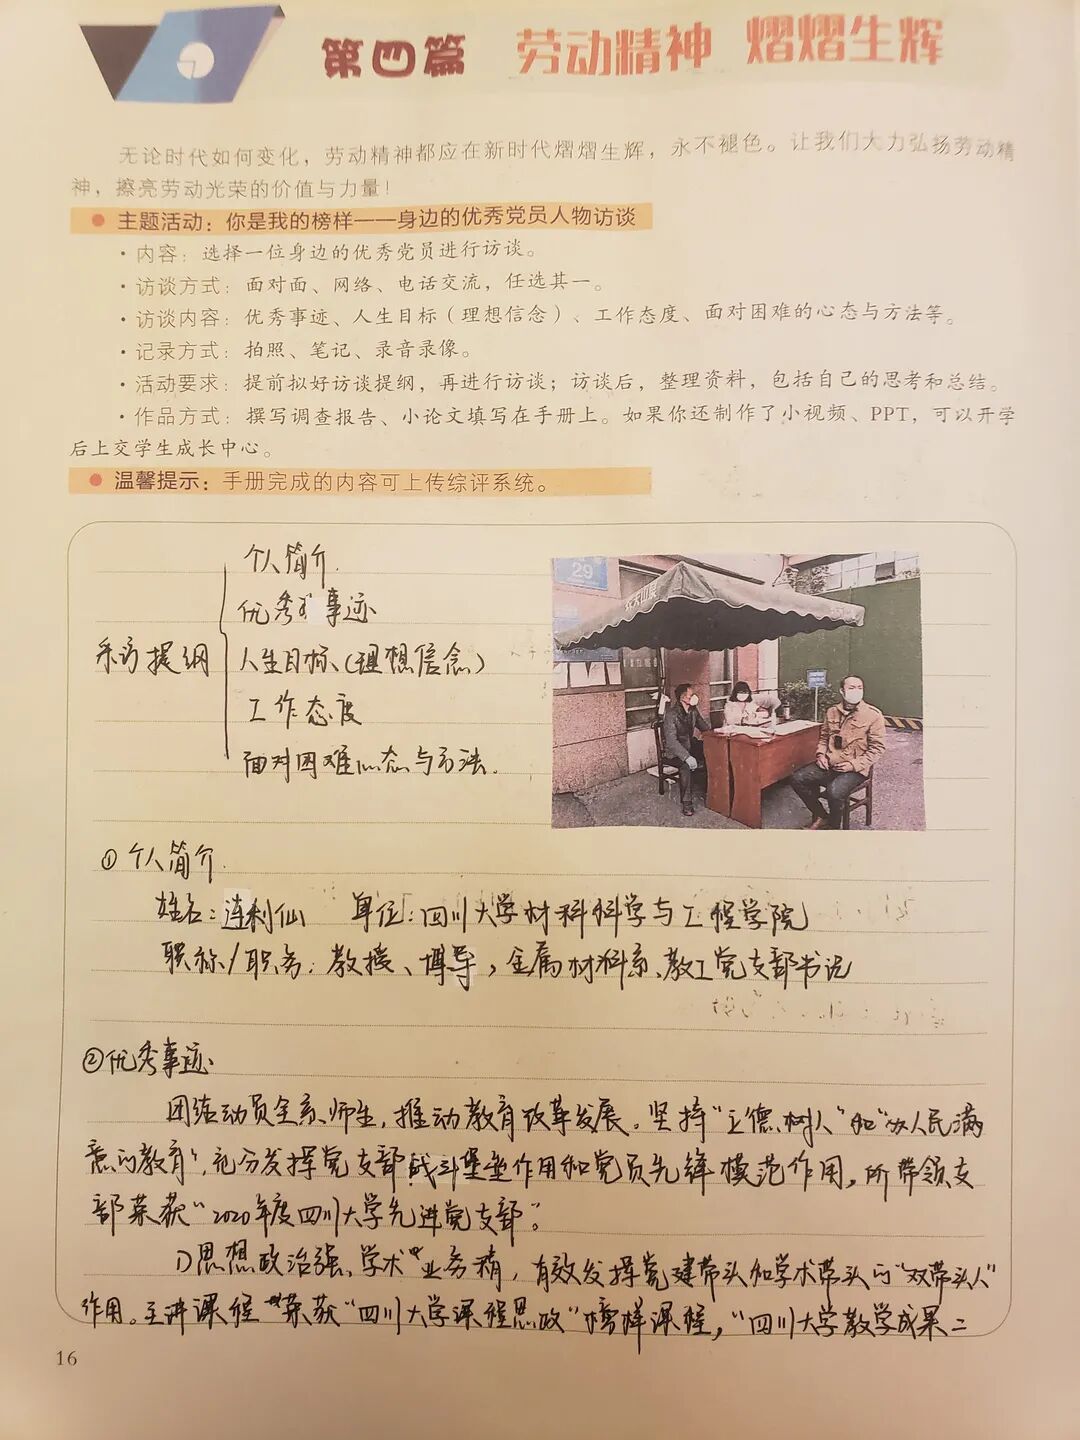 第四篇 劳动精神 熠熠生辉
无论时代如何变化，劳动精神都应在新时代熠熠生辉，永不褪色。让我们大力弘扬劳动精
神，擦亮劳动光荣的价值与力量！
● 主题活动：你是我的榜样——身边的优秀党员人物访谈
·内容：选择一位身边的优秀党员进行访谈。
·访谈方式：面对面、网络、电话交流，任选其一。
·访谈内容：优秀事迹、人生目标（理想信念）、工作态度、面对困难的心态与方法等。
·记录方式：拍照、笔记、录音录像。
·活动要求：提前拟好访谈提纲，再进行访谈；访谈后，整理资料，包括自己的思考和总结。
·作品方式：撰写调查报告、小论文填写在手册上。如果你还制作了小视频、PPT，可以开学
后上交学生成长中心。
● 温馨提示：手册完成的内容可上传综评系统。
采访提纲
个人简介
优秀事迹
人生目标（理想信念）
工作态度
面对困难心态与方法
29
①个人简介
姓名：连利仙 单位：四川大学材料科学与工程学院
职称/职务：教授、博导，金属材料系、教工党支部书记
②优秀事迹
团结动员全系师生，推动教育改革发展。坚持“立德树人”和“办人民满
意的教育”，充分发挥党支部战斗堡垒作用和党员先锋模范作用，所带领支
部荣获“2020年度四川大学先进党支部”。
1)思想政治强、学术业务精，有效发挥党建带头和学术带头的“双带头人”
作用。主讲课程荣获“四川大学课程思政”榜样课程，“四川大学教学成果二
16